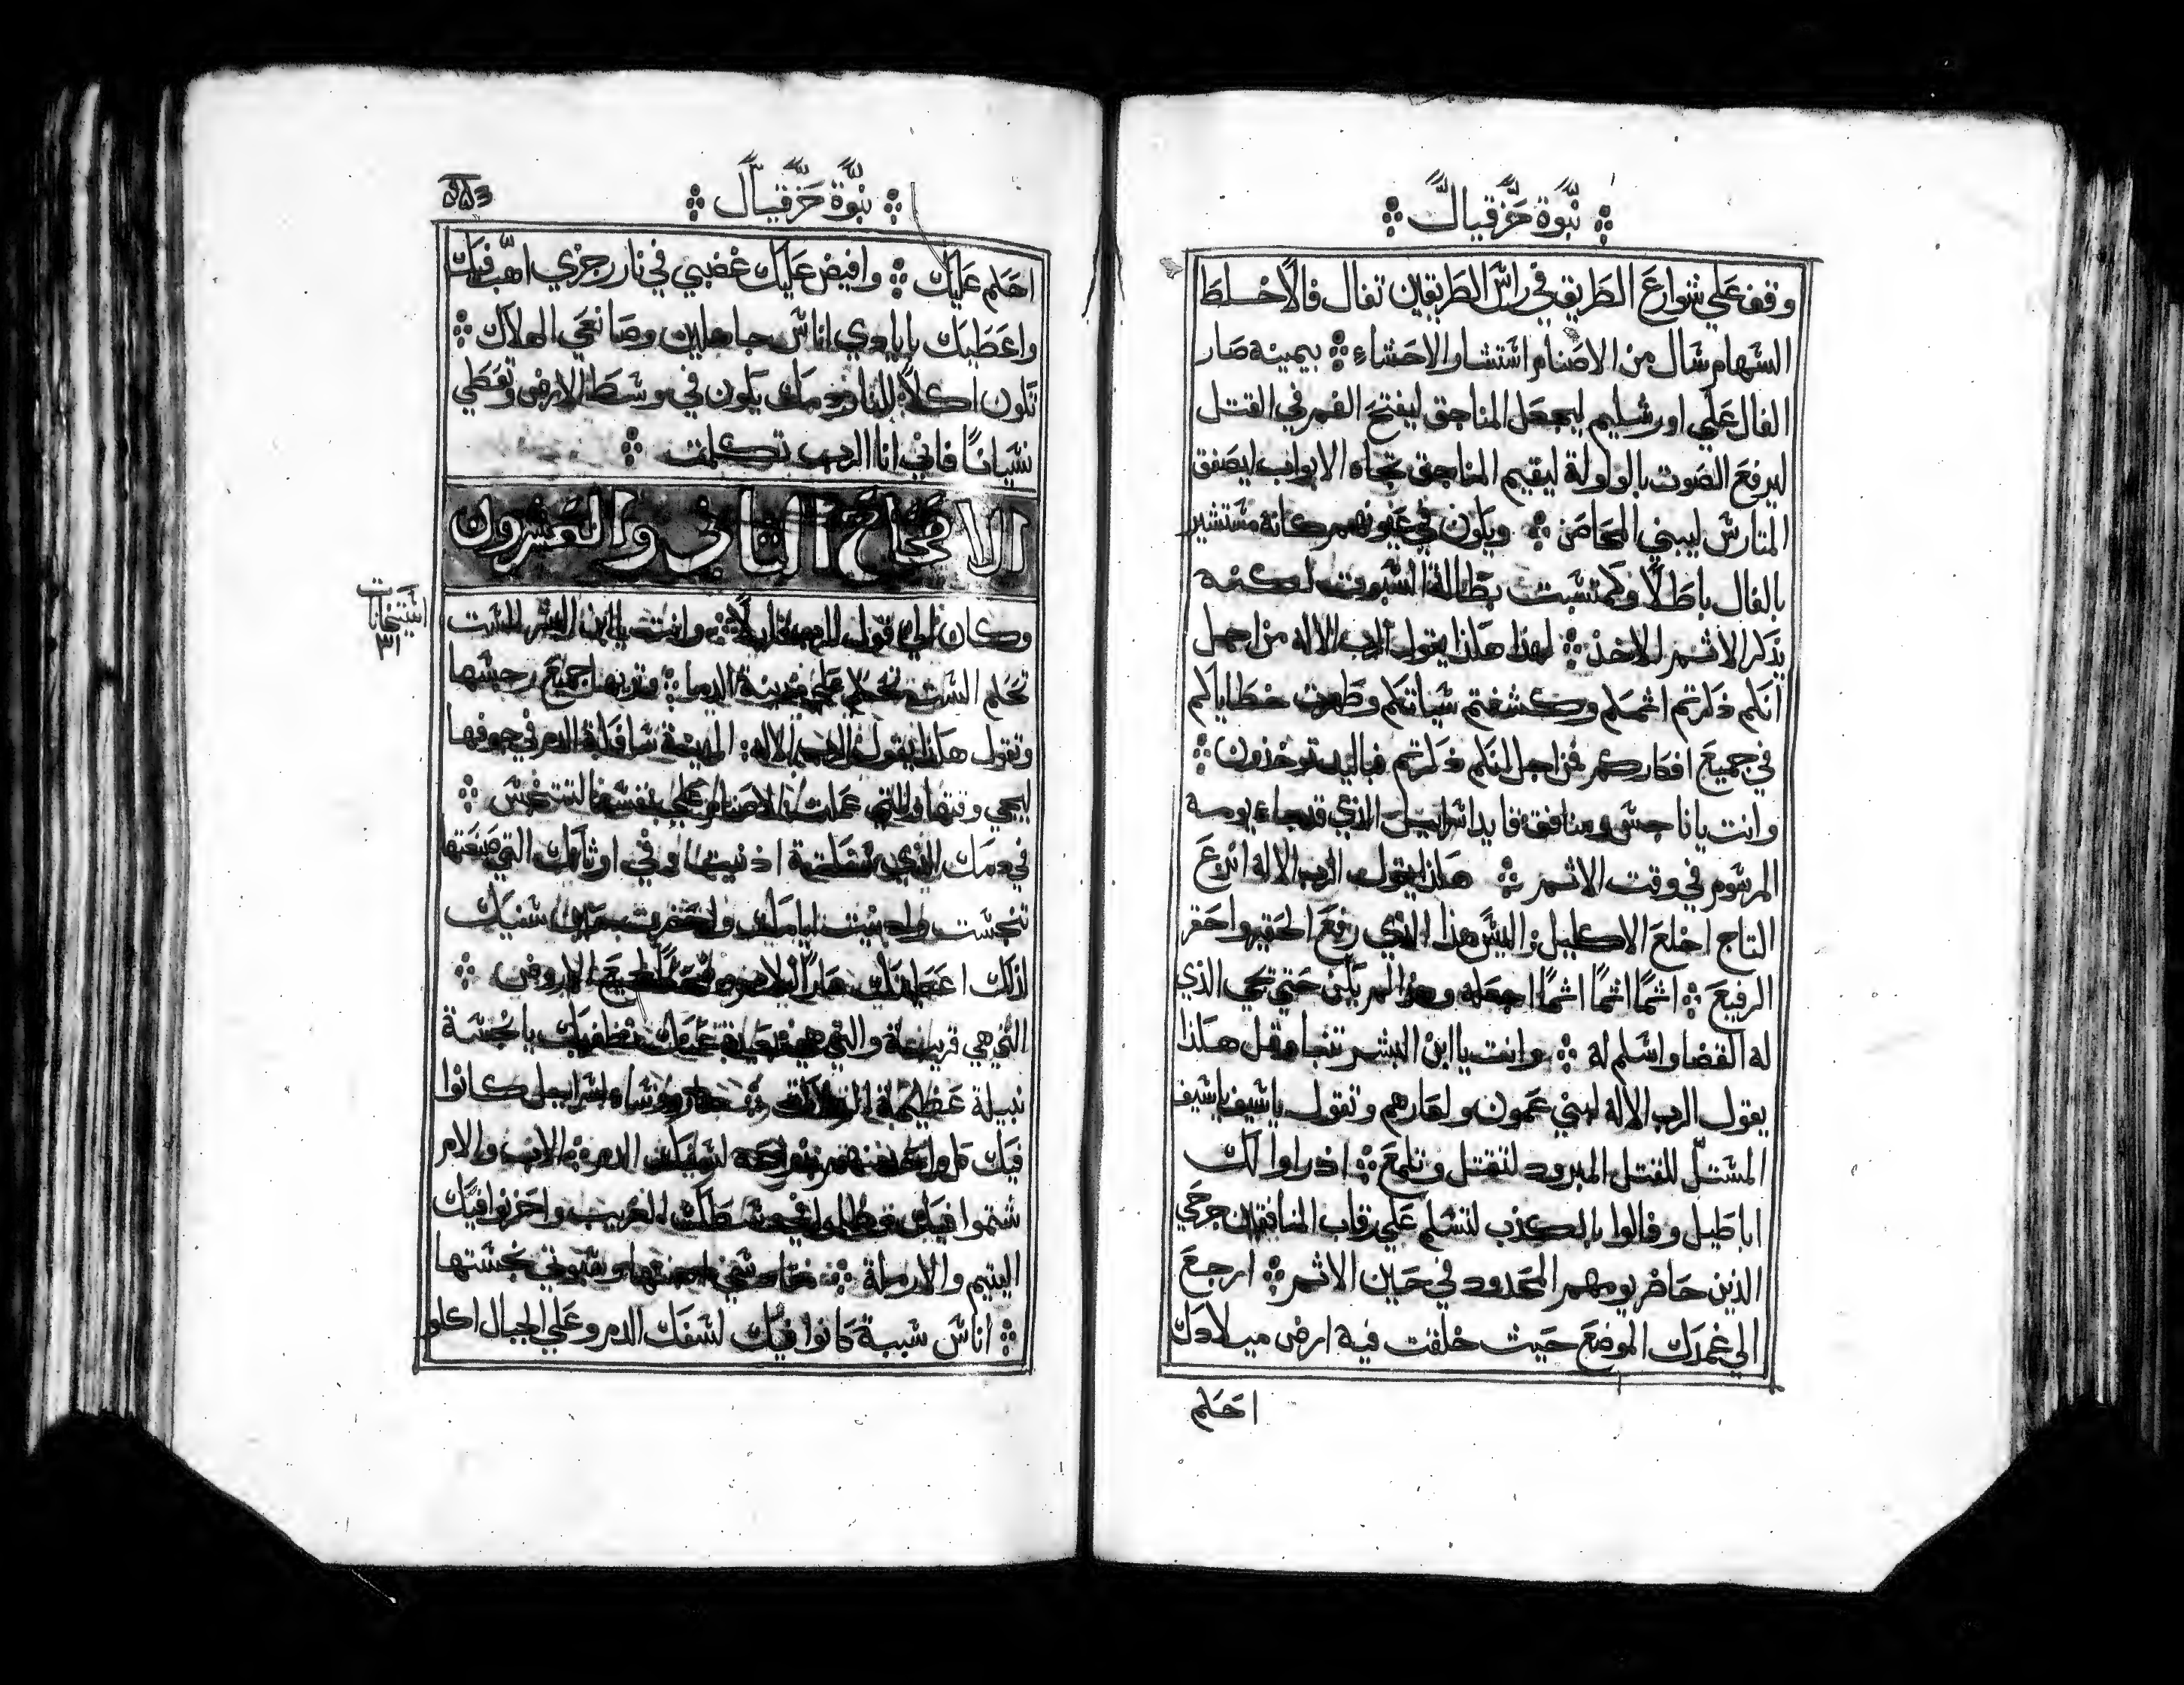 نبوة حزقيال
وقف علي شوارع الطريق في راس الطريقين تفال فالا خلط
السهام سال من الاصنام استشار الاحشاء بيمينه صار
الفال علي اورشليم ليجعل المناجق ليفتح الفم في القتل
ليرفع الصوت بالولولة ليقيم المناجق تجاه الابواب ليصفق
المتارس ليبني المحاصن ويكون في عيونهم كانه مستشير
بالفال باطلا وكمتسبت بطالة السبوت لكنه
يذكر الاثم للاخذ لهذا هكذا يقول الرب الاله من اجل
انكم ذكرتم اثمكم وكشفتم سياتكم وظهرت خطاياكم
في جميع افكاركم فمن اجل انكم ذكرتم فباليد توخذون
وانت يا ناجس ومنافق قايد اسراييل الذي قد جاء يومه
المرسوم في وقت الاثم هكذا يقول الرب الاله انزع
التاج اخلع الاكليل اليس هذا الذي رفع الحقير واحقر
الرفيع اثما اثما اثما اجعله وهذا لم يكن حتي يجي الذي
له القضا واسلم له وانت يا ابن البشر تنبا وقل هكذا
يقول الرب الاله لبني عمون ولعارهم وتقول يا سيف يا سيف
المستل للقتل المبرود لتقتل وتلمع اذ راوا لك
اباطيل وقالوا بالكذب لتسلم علي رقاب المنافقين جرحي
الذين حاضر يومهم المحدود في حين الاثم ارجع
الي غمدك الموضع حيث خلقت فيه ارض ميلادك
احكم
نبوة حزقيال
احكم عليك وافيض عليك غضبي في نار رجزي اهب فيك
واعطيك بايادي اناس جاهلين وصانعي الهلاك
تكون اكلا للنار دمك يكون في وسط الارض وتعطي
نسيانا فاني انا الرب تكلمت
الاصحاح الثاني والعشرون
وكان الي قول الرب قايلا وانت يا ابن البشر الست
تحكم الست تحكم علي مدينة الدما وتريها جميع رجسها
وتقول هكذا يقول الرب الاله المدينة سافكة الدم في جوفها
ليجي وقتها والتي عملت الاصنام علي نفسها لتتنجس
في دمك الذي سفكته اذنبت وفي اوثانك التي صنعتها
تنجست وادنيت ايامك واحضرت سنيك
لذلك اعطيتك عارا للامم لجميع الاراضي
التي هي قريبة والتي هي بعيدة عنك يا نجسة
نبيلة عظيمة الهلاك روسا اسراييل كانوا
فيك كل واحد منهم بذراعه لسفك الدم الاب والام
شتموا فيك ظلموا في وسطك الغريب واحزنوا فيك
اليتيم والارملة مقادسي اهنتها وسبوتي نجستها
اناس نميمة كانوا فيك لسفك الدم وعلي الجبال اكلوا